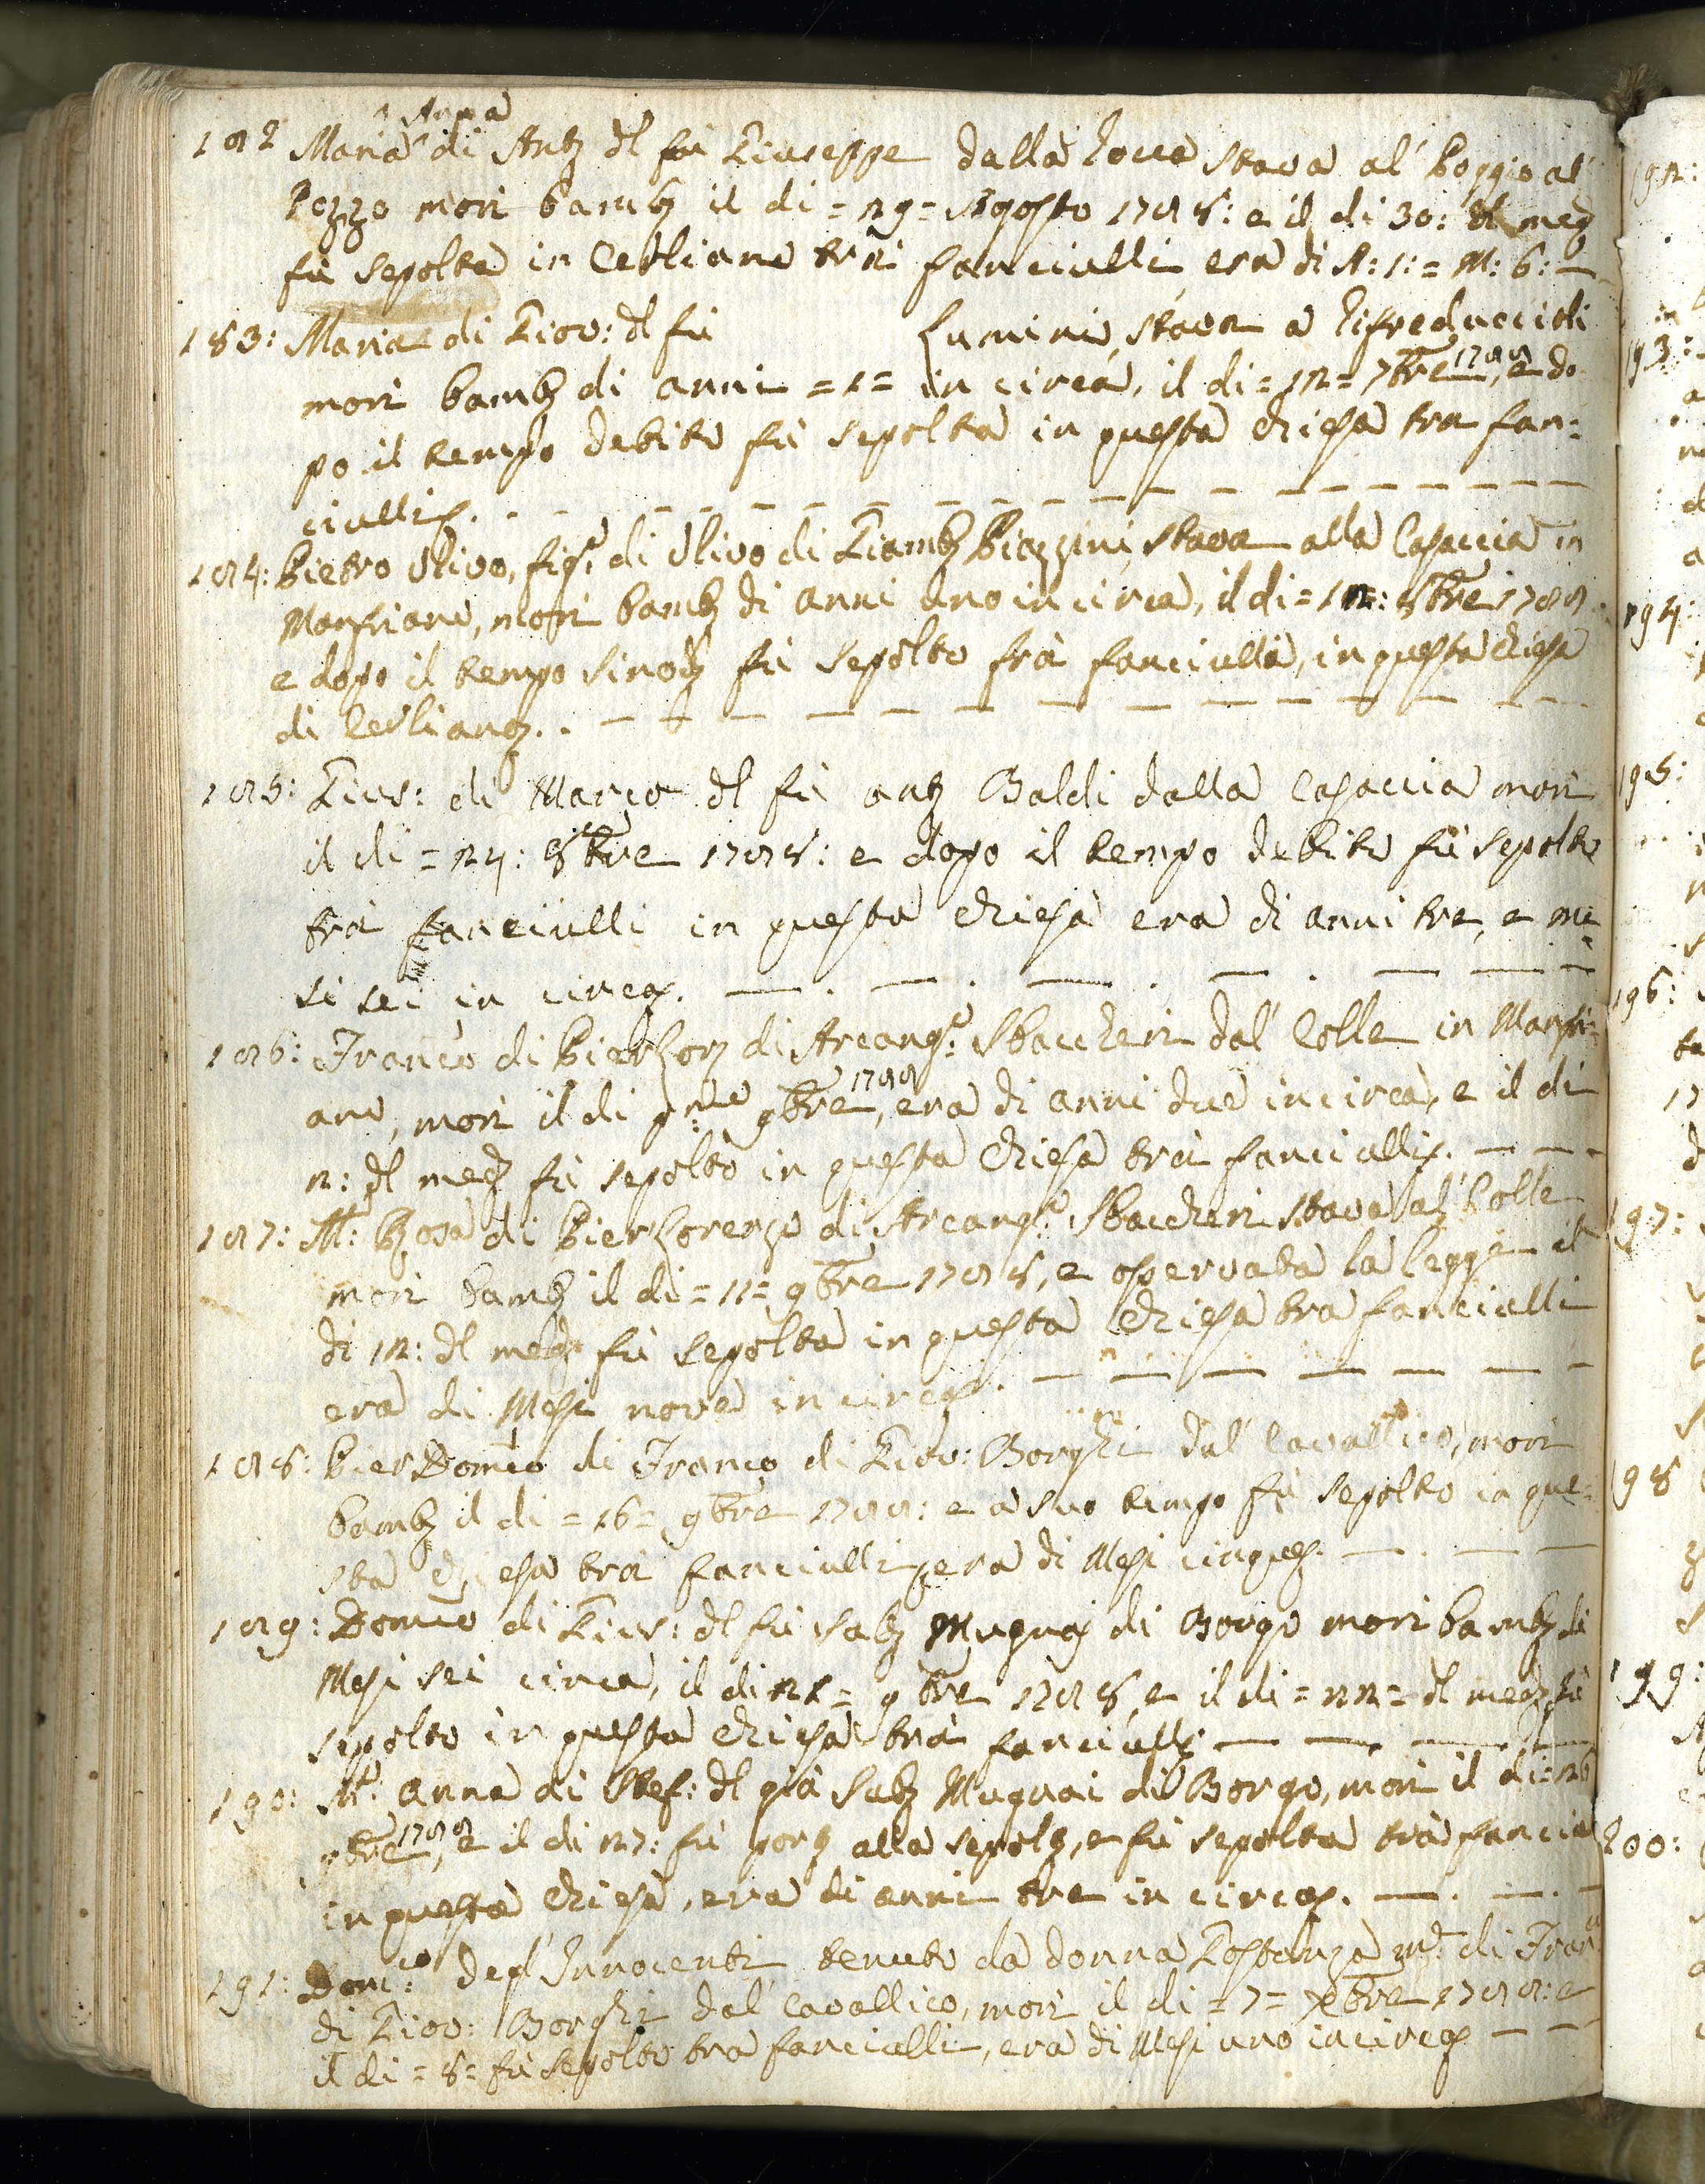 Anna
182 Maria di Antº dl fù Giuseppe dalla Rocca stava al' Poggio al'
Pozzo morì bambª il dì = 29 = Agosto 1788: e il dì 30: dl medº
fù sepolta in Cerliano trà fanciulli era di A: 1: = M: 6: —
183: Maria di Giov: dl fù Lumini, stava a Rifreduccioli
morì bambª di anni = 1 = in circa, il dì = 12 = 7bre 1788, e do
po il tempo debito fù sepolta in questa chiesa tra fan:
ciulli.
184: Pietro Olivo, figº di Olivo di Giambª Piazzini, stava alla Casaccia in
Manfriano, morì bambº di anni uno in circa, il dì = 12: 8bre 1788
e dopo il tempo sinodº fù sepolto frà fanciulli, in questa chiesa
di Cerliano.
185: Gius: di Marco dl fù antº Baldi dalla Casaccia morì
il dì = 24: 8bre 1788: e dopo il tempo debito fù sepolto
trà fanciulli in questa chiesa era di anni tre, e me
si sei in circa.
186: Franco di PierLorº di Arcangº Staccheri dal' Colle in Manfri=
ano, morì il dì pmo 9bre 1788, era di anni due in circa, e il dì
2: dl medº fù sepolto in questa chiesa trà fanciulli.
187: Mª: Rosa di PierLorenzo di Arcangº Staccheri stava al' Colle
morì bambª il dì = 11 = 9bre 1788, e osservata la legge il
dì 12: dl medº fù sepolta in questa chiesa tra fanciulli
era di Mesi nove in circa.
188: PierDomco di Franco di Giov: Borghi dal' Cavallico, morì
bambº il dì = 16 = 9bre 1788: e a suo tempo fù sepolto in que=
sta chiesa trà fanciulli, era di Mesi cinque.
189: Domco di Gius: dl fù Sabº Mugnai di Borgo morì bambº di
Mesi sei circa, il dì 21 = 9bre 1788, e il dì = 22 = dl medº fù
sepolto in questa chiesa trà fanciulli
190: Mª: anna di Stef: dl già Sabº Mugnai di Borgo, morì il dì = 26
9bre 1788, e il dì 27: fù portª alla sepolª, e fù sepolta trà fanciul
in questa chiesa, era di anni tre in circa.
191: Domco degl' Innocenti tenuto da donna Costanza mª: di Franco
di Giov: Borghi dal' Cavallico, morì il dì = 7 = Xbre 1788: e
il dì = 8 = fù sepolto tra fanciulli, era di Mesi uno in circa
192:
193:
194:
195:
196:
197:
198
199:
200: